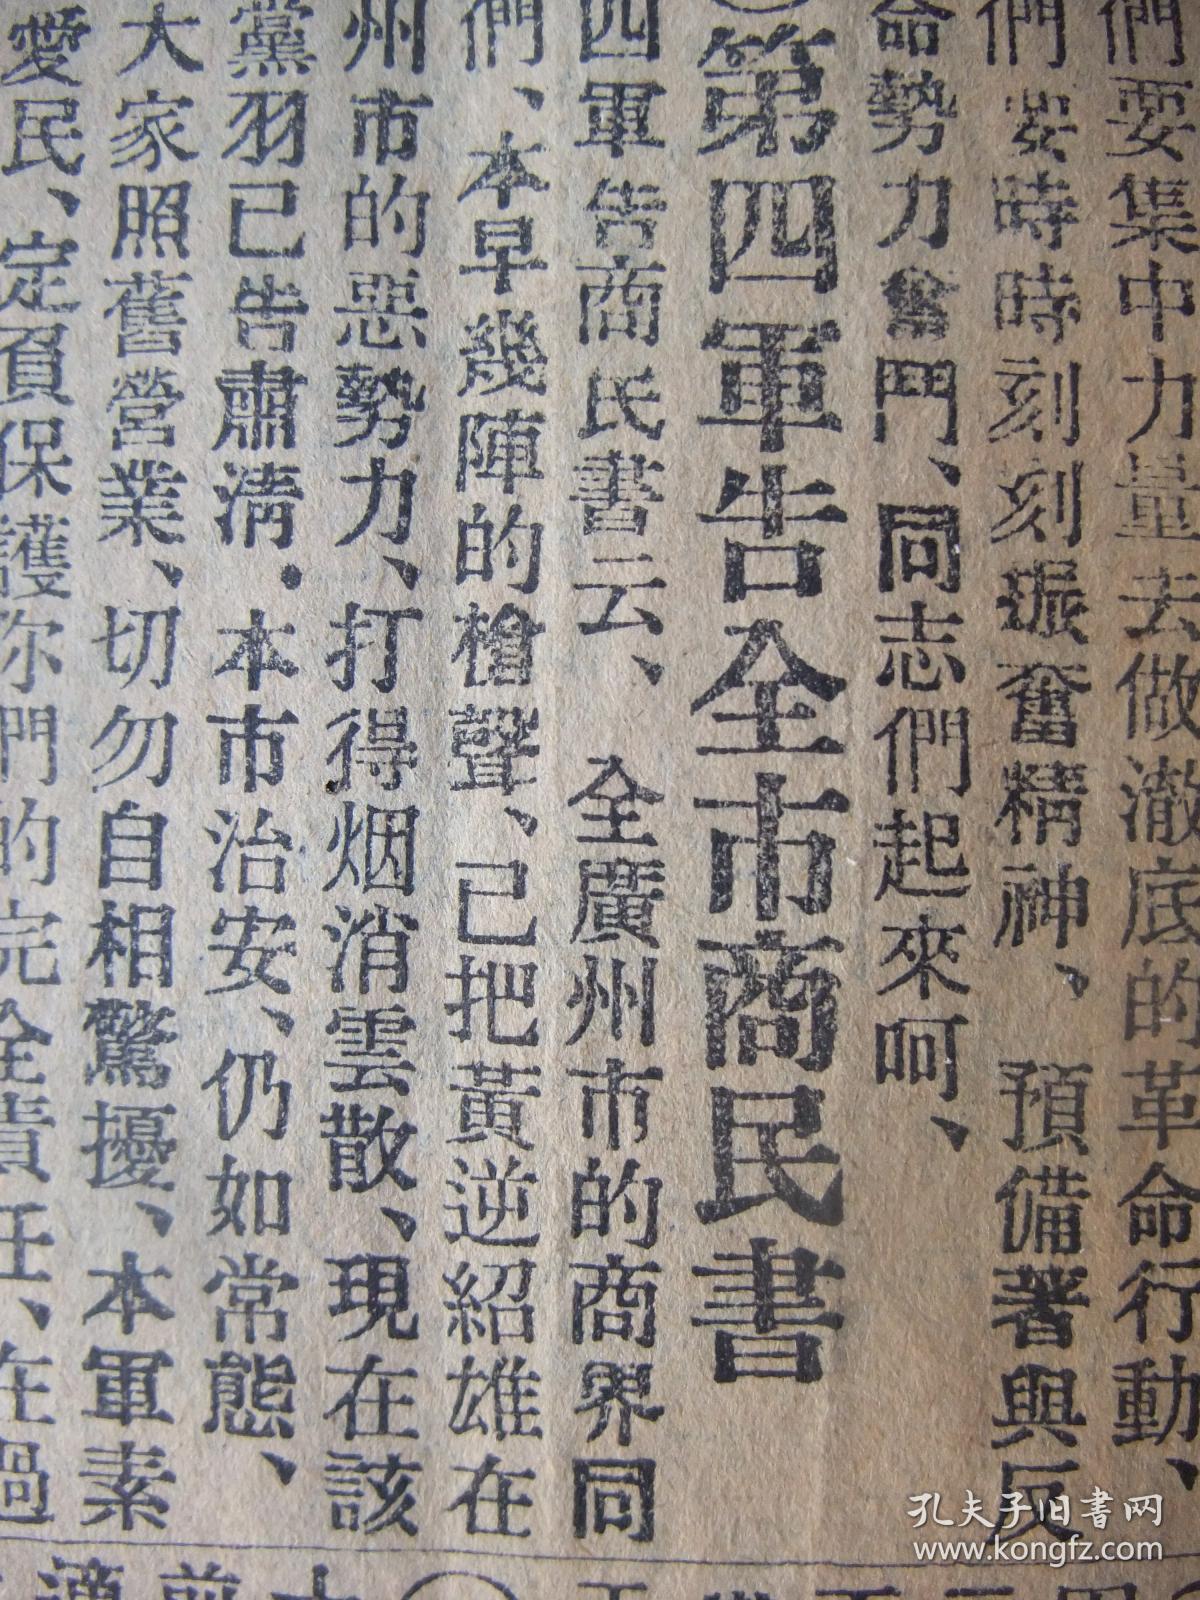 們要集中力量去做澈底的革命行動、
們要時時刻刻振奮精神、預備著與反
命勢力奮鬥、同志們起來呵、
第四軍告全市商民書
四軍告商民書云、全廣州市的商界同
們、本早幾陣的槍聲、已把黃逆紹雄在
州市的惡勢力、打得烟消雲散、現在該
黨羽已告肅清．本市治安、仍如常態、
大家照舊營業、切勿自相驚擾、本軍素
愛民、定負保護你們的完全責任、在過
孔夫子旧书网
www.kongfz.com